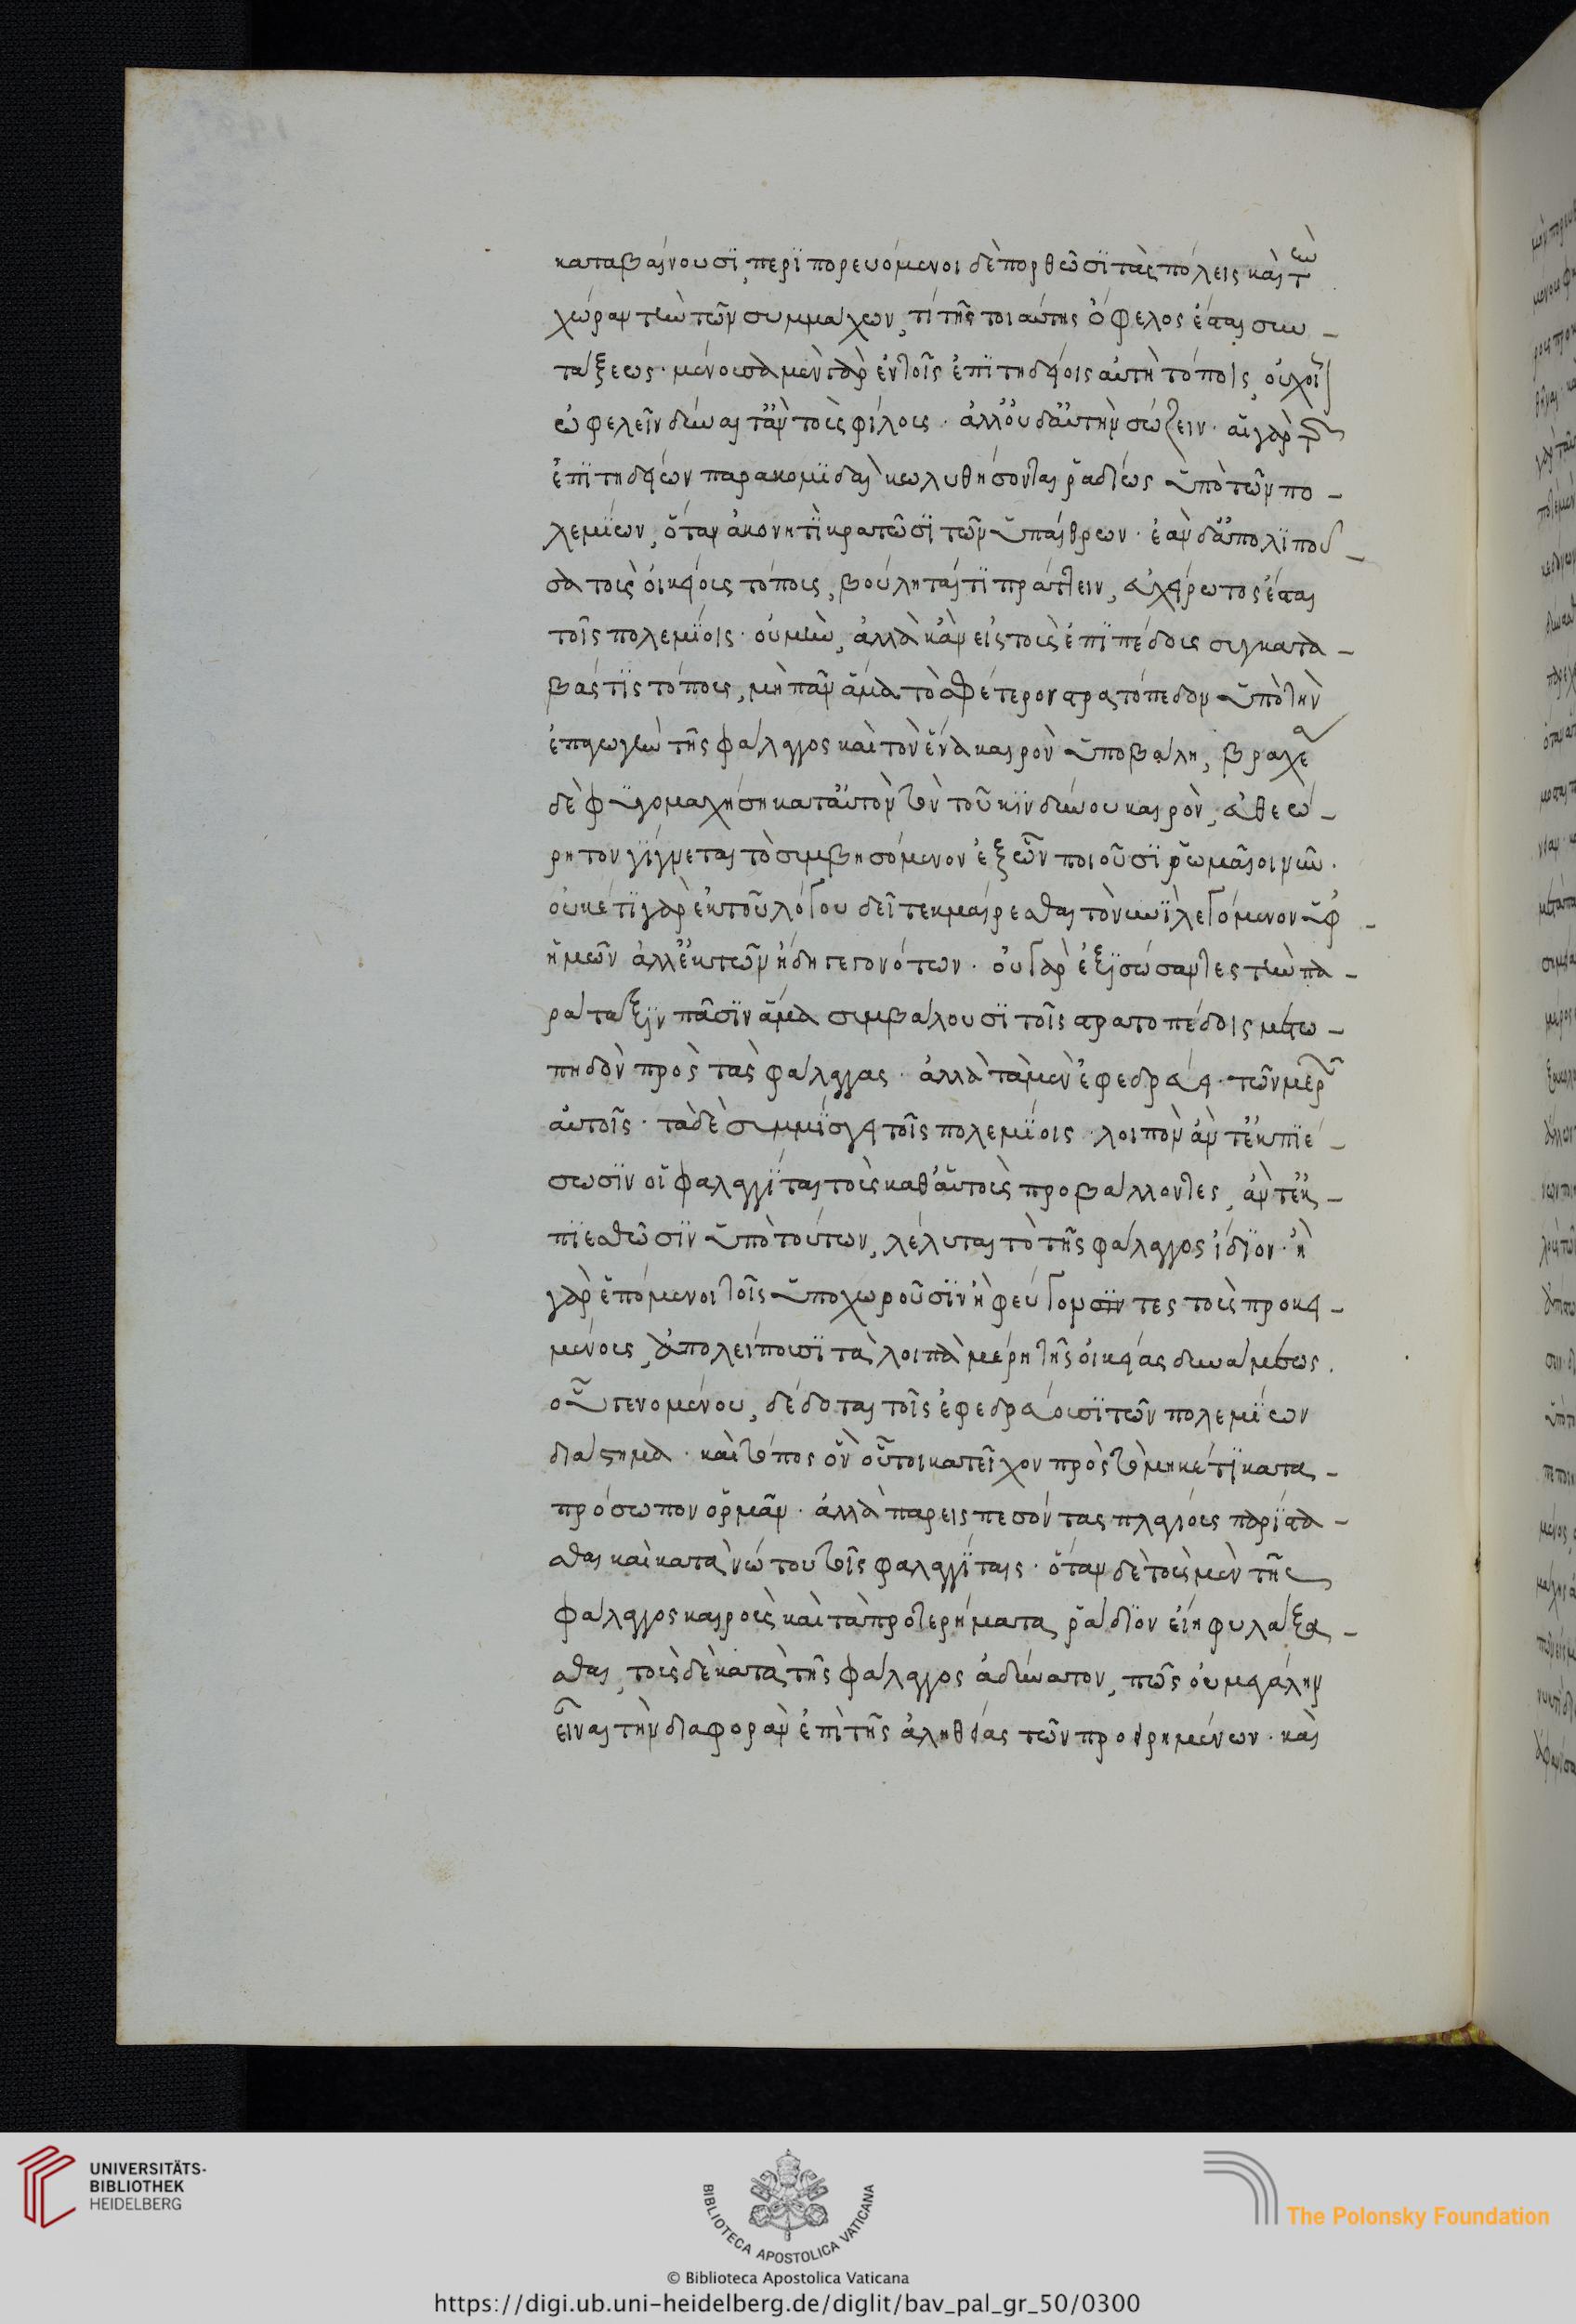 καταβαίνουσι, περιπορευόμενοι δὲ πορθῶσι τὰς πόλεις καὶ τὴν
χώραν τὴν τῶν συμμάχων, τί τῆς τοιαύτης ὄφελος ἔσται συν-
τάξεως· μένουσα μὲν γὰρ ἐν τοῖς ἐπιτηδείοις αὐτῇ τόποις, οὐχ οἷ
ὠφελεῖν δύναιτ' ἂν τοὺς φίλους· ἀλλ' οὐδ' αὑτὴν σώζειν· αἱ γὰρ τῶν
ἐπιτηδείων παρακομιδαὶ κωλυθήσονται ῥαδίως ὑπὸ τῶν πο-
λεμίων, ὅταν ἀκονητὶ κρατῶσι τῶν ὑπαίθρων· ἐὰν δ' ἀπολιποῦ-
σα τοὺς οἰκείους τόπους, βούληταί τι πράττειν, εὐχείρωτος ἔσται
τοῖς πολεμίοις· οὐ μὴν, ἀλλὰ κἂν εἰς τοὺς ἐπιπέδους συγκατα-
βάς τις τόπους, μὴ πᾶν ἅμα τὸ σφέτερον στρατόπεδον ὑπὸ τὴν
ἐπαγωγὴν τῆς φάλαγγος καὶ τὸν ἕνα καιρὸν ὑποβάλῃ, βραχέα
δὲ φυγομαχήσῃ κατ' αὐτὸν τὸν τοῦ κινδύνου καιρὸν, εὐθεώ-
ρητον γίγνεται τὸ συμβησόμενον ἐξ ὧν ποιοῦσι ῥωμαῖοι νῦν.
οὐκέτι γὰρ ἐκ τοῦ λόγου δεῖ τεκμαίρεσθαι τὸ νυνὶ λεγόμενον ὑφ'
ἡμῶν ἀλλ' ἐκ τῶν ἤδη γεγονότων· οὐ γὰρ ἐξισώσαντες τὴν πα-
ράταξιν πᾶσιν ἅμα συμβάλουσι τοῖς στρατοπέδοις μετω-
πηδὸν πρὸς τὰς φάλαγγας· ἀλλὰ τὰ μὲν ἐφεδρεύει· τῶν μερῶν
αὐτοῖς· τὰ δὲ συμμίσγει τοῖς πολεμίοις· λοιπὸν ἄν τ' ἐκπιέ-
σωσιν οἱ φαλαγγίται τοὺς καθ' αὑτοὺς προβάλλοντες, ἄν τ' ἐκ-
πιεσθῶσιν ὑπὸ τούτων, λέλυται τὸ τῆς φάλαγγος ἴδιον· ἢ
γὰρ ἑπόμενοι τοῖς ὑποχωροῦσιν ἢ φεύγοντες τοὺς προκει-
μένους, ἀπολείπουσι τὰ λοιπὰ μέρη τῆς οἰκείας δυνάμεως.
οὗ γενομένου, δέδοται τοῖς ἐφεδρεύουσι τῶν πολεμίων
διάστημα· καὶ τόπος ὃν οὗτοι κατεῖχον πρὸς τὸ μηκέτι κατα-
πρόσωπον ὁρμᾶν· ἀλλὰ παρεισπεσόντας πλαγίους παρίστα-
σθαι καὶ κατὰ νώτου τοῖς φαλαγγίταις· ὅταν δὲ τοὺς μὲν τῆς
φάλαγγος καιροὺς καὶ τὰ προτερήματα ῥάδιον εἴη φυλάξα-
σθαι, τοὺς δὲ κατὰ τῆς φάλαγγος ἀδύνατον, πῶς οὐ μεγάλην
εἶναι τὴν διαφορὰν ἐπὶ τῆς ἀληθείας τῶν προειρημένων· καὶ
UNIVERSITÄTS-
BIBLIOTHEK
HEIDELBERG
BIBLIOTECA APOSTOLICA VATICANA
The Polonsky Foundation
© Biblioteca Apostolica Vaticana
https://digi.ub.uni-heidelberg.de/diglit/bav_pal_gr_50/0300